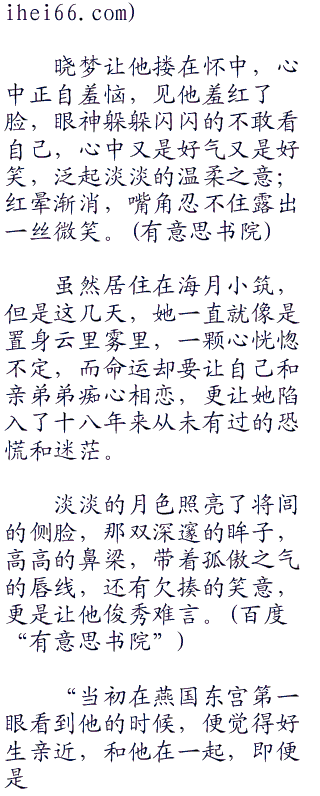 ihei66.com)
晓梦让他搂在怀中，心
中正自羞恼，见他羞红了
脸，眼神躲躲闪闪的不敢看
自己，心中又是好气又是好
笑，泛起淡淡的温柔之意；
红晕渐消，嘴角忍不住露出
一丝微笑。(有意思书院)
虽然居住在海月小筑，
但是这几天，她一直就像是
置身云里雾里，一颗心恍惚
不定，而命运却要让自己和
亲弟弟痴心相恋，更让她陷
入了十八年来从未有过的恐
慌和迷茫。
淡淡的月色照亮了将闾
的侧脸，那双深邃的眸子，
高高的鼻梁，带着孤傲之气
的唇线，还有欠揍的笑意，
更是让他俊秀难言。(百度
“有意思书院”)
“当初在燕国东宫第一
眼看到他的时候，便觉得好
生亲近，和他在一起，即便
是